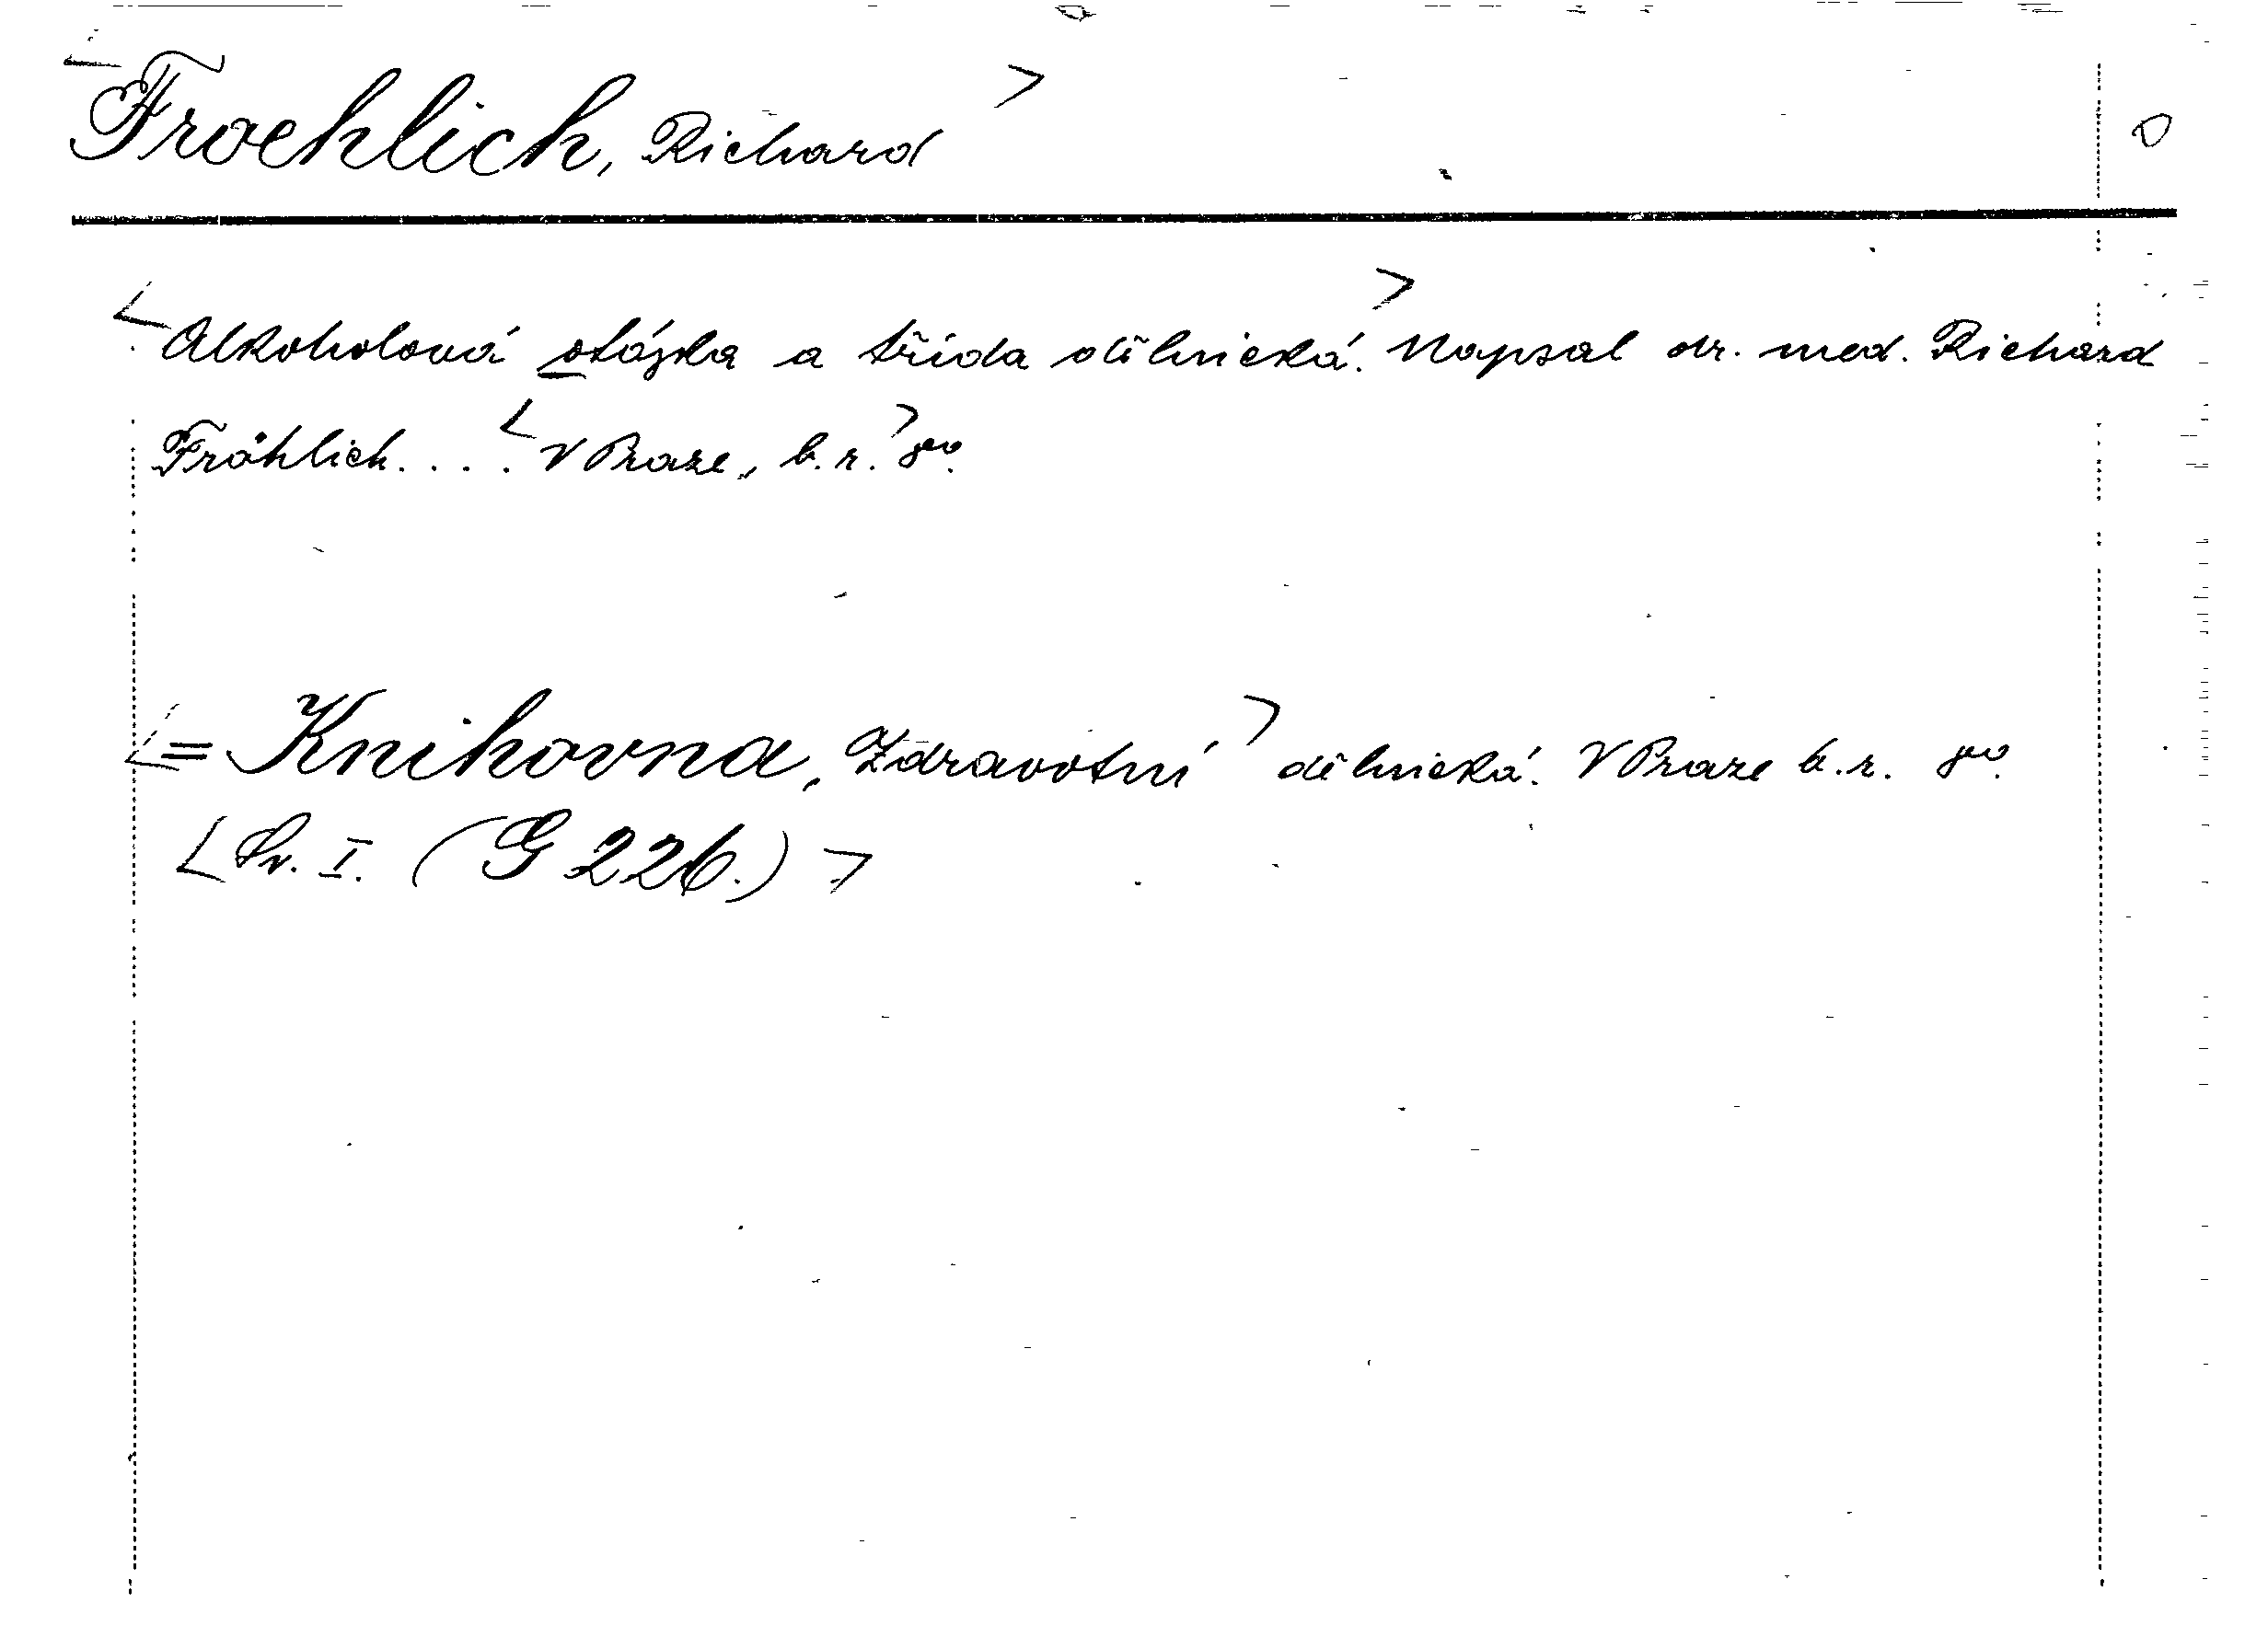 <Froehlich, Richard>
<Alkoholová otázka a třída dělnická.> Napsal dr. med. Richard
Fröhlich. . . . <V Praze, b. r.> 8º.
<= Knihovna, Zdravotní> dělnická. V Praze b. r. 8º.
<Sv. I. (G 226.)>